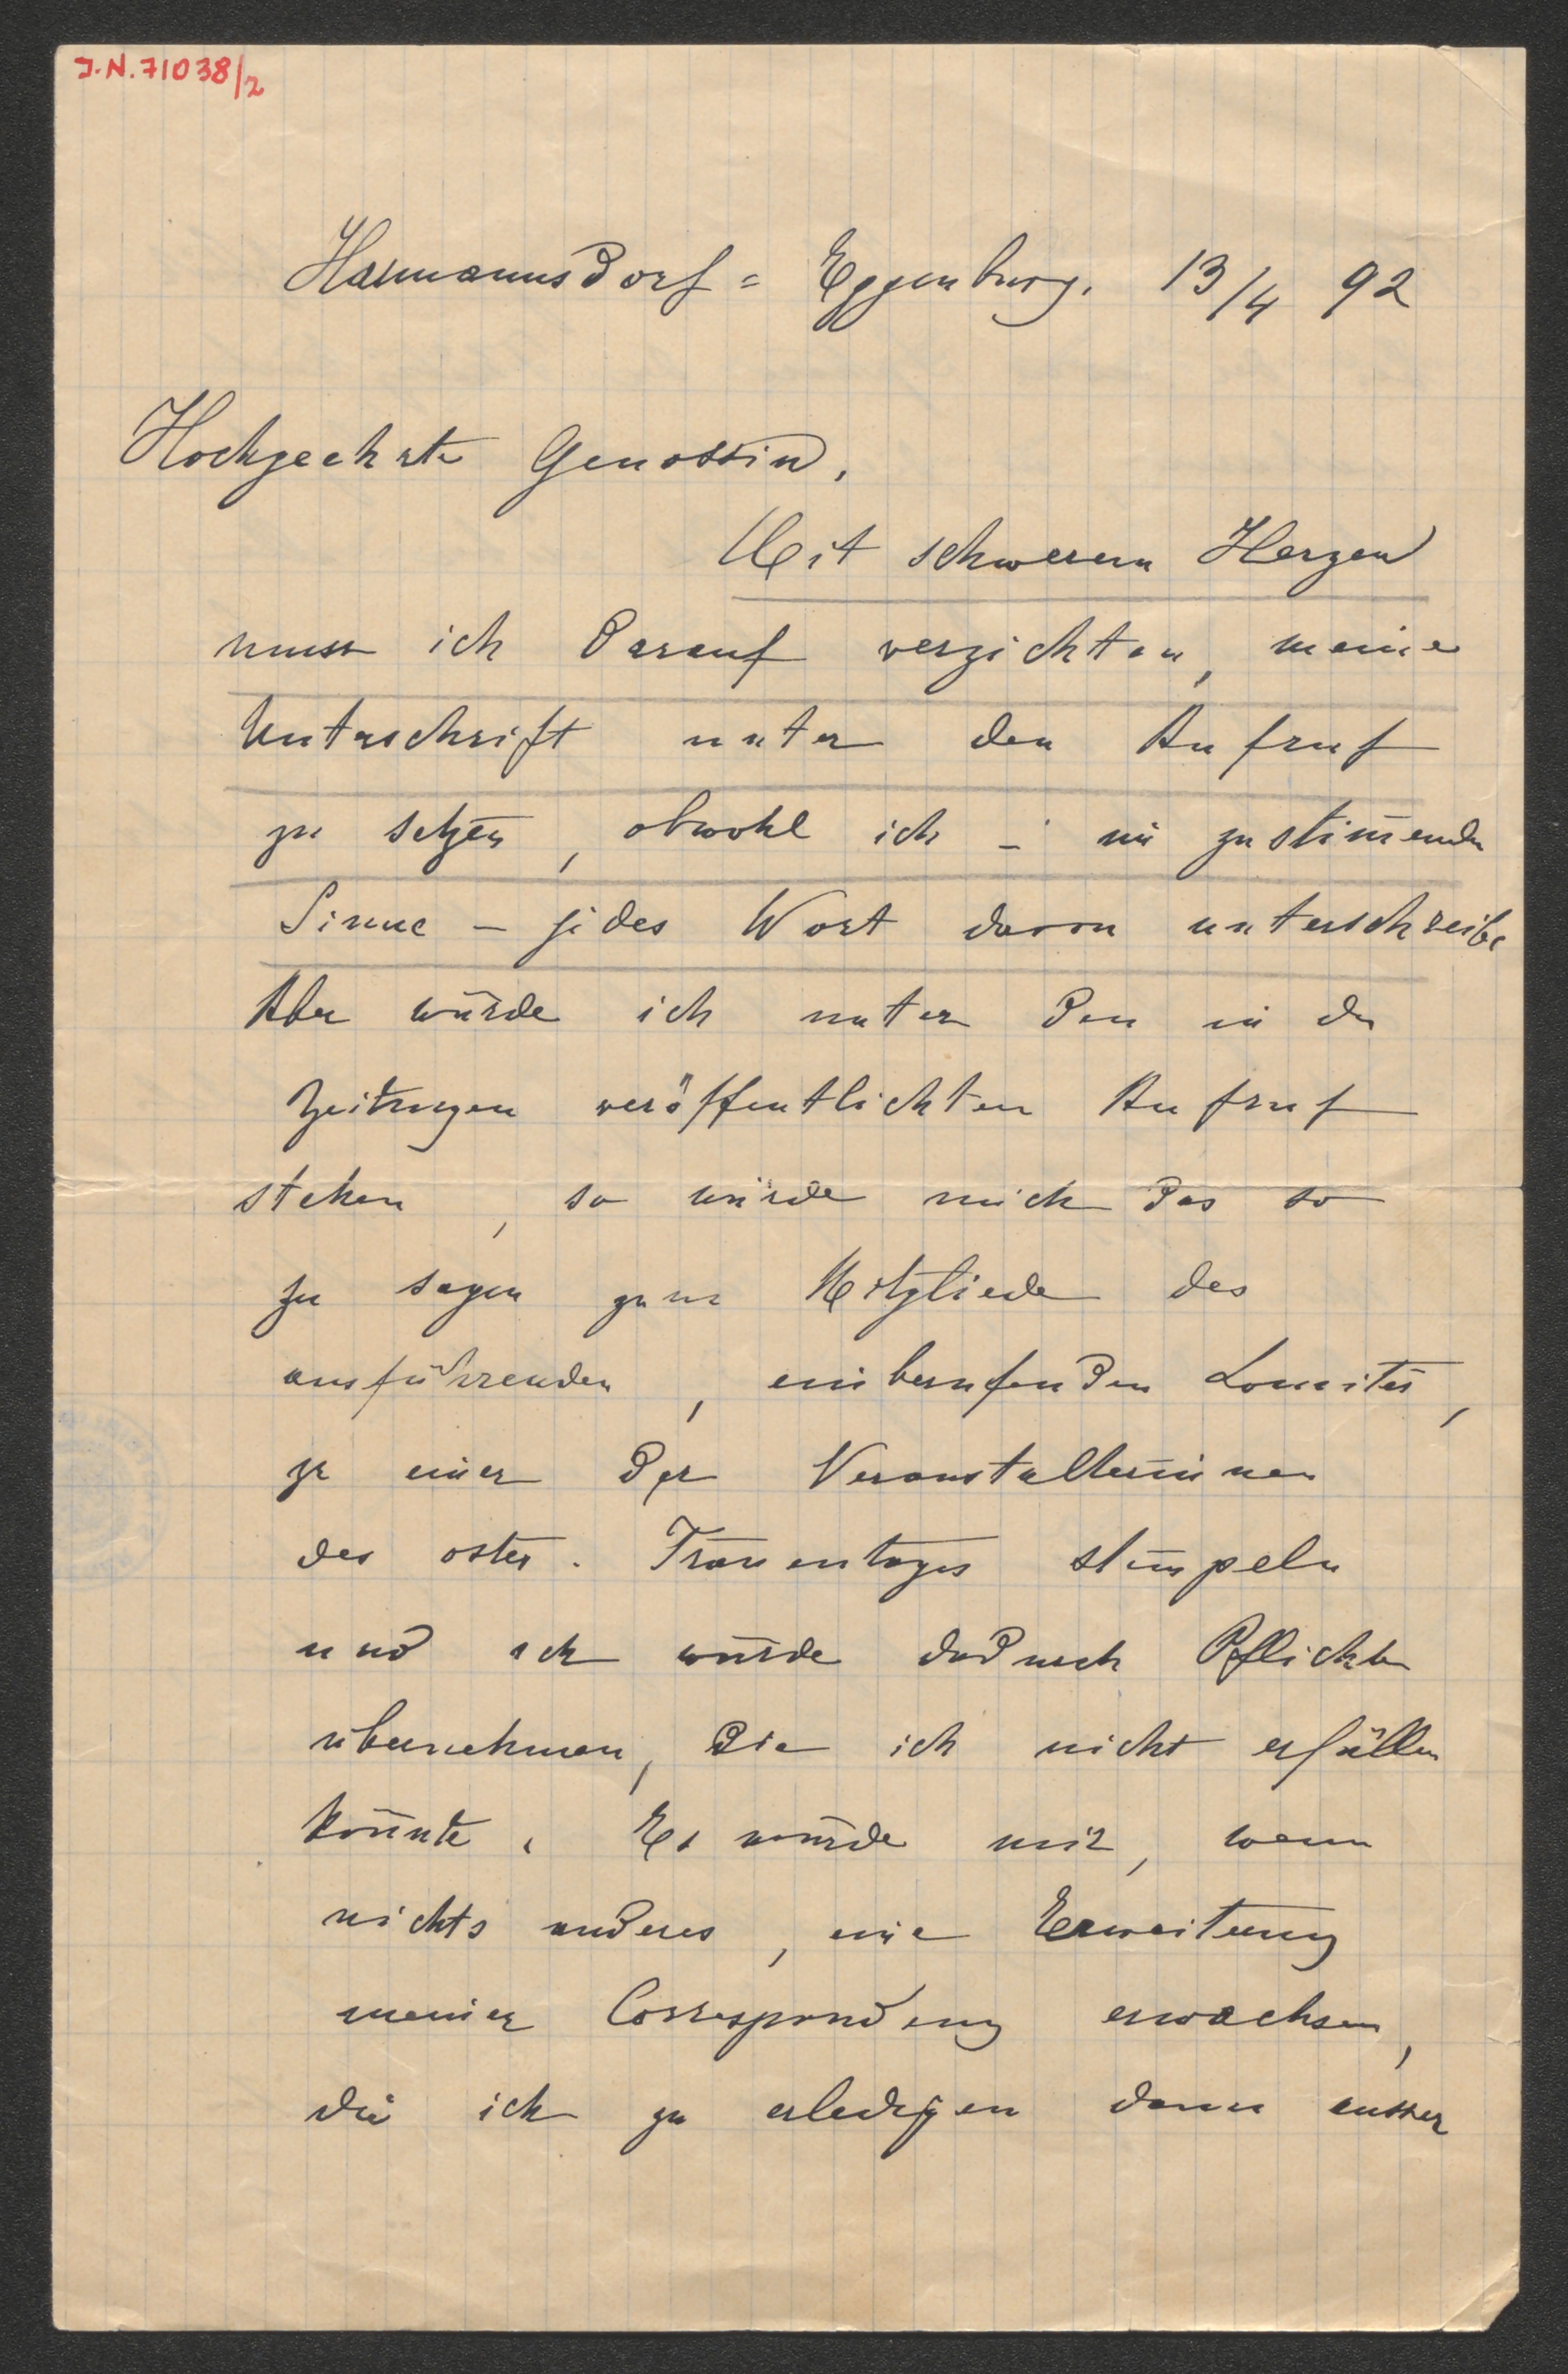 J.N. 71038/2
Harmannsdorf = Eggenburg. 13/4 92
Hochgeehrte Genossin,
Mit schwerem Herzen
muss ich darauf verzichten, meine
Unterschrift unter den Aufruf
zu setzen, obwohl ich – im zustim̄enden
Sinne – jedes Wort davon unterschreibe
Aber würde ich unter den in den
Zeitungen veröffentlichten Aufruf
stehen, so würde mich das so
zu sagen zum Mitgliede des
ausführenden, einberufenden Comités,
zu einer der Veranstalterinnen
des öster. Frauentages stempeln
und ich würde dadurch Pflichten
übernehmen, die ich nicht erfüllen
könnte. Es würde mir, wenn
nichts anderes, eine Erweiterung
meiner Correspondenz erwachsen,
die ich zu erledigen dann ausser